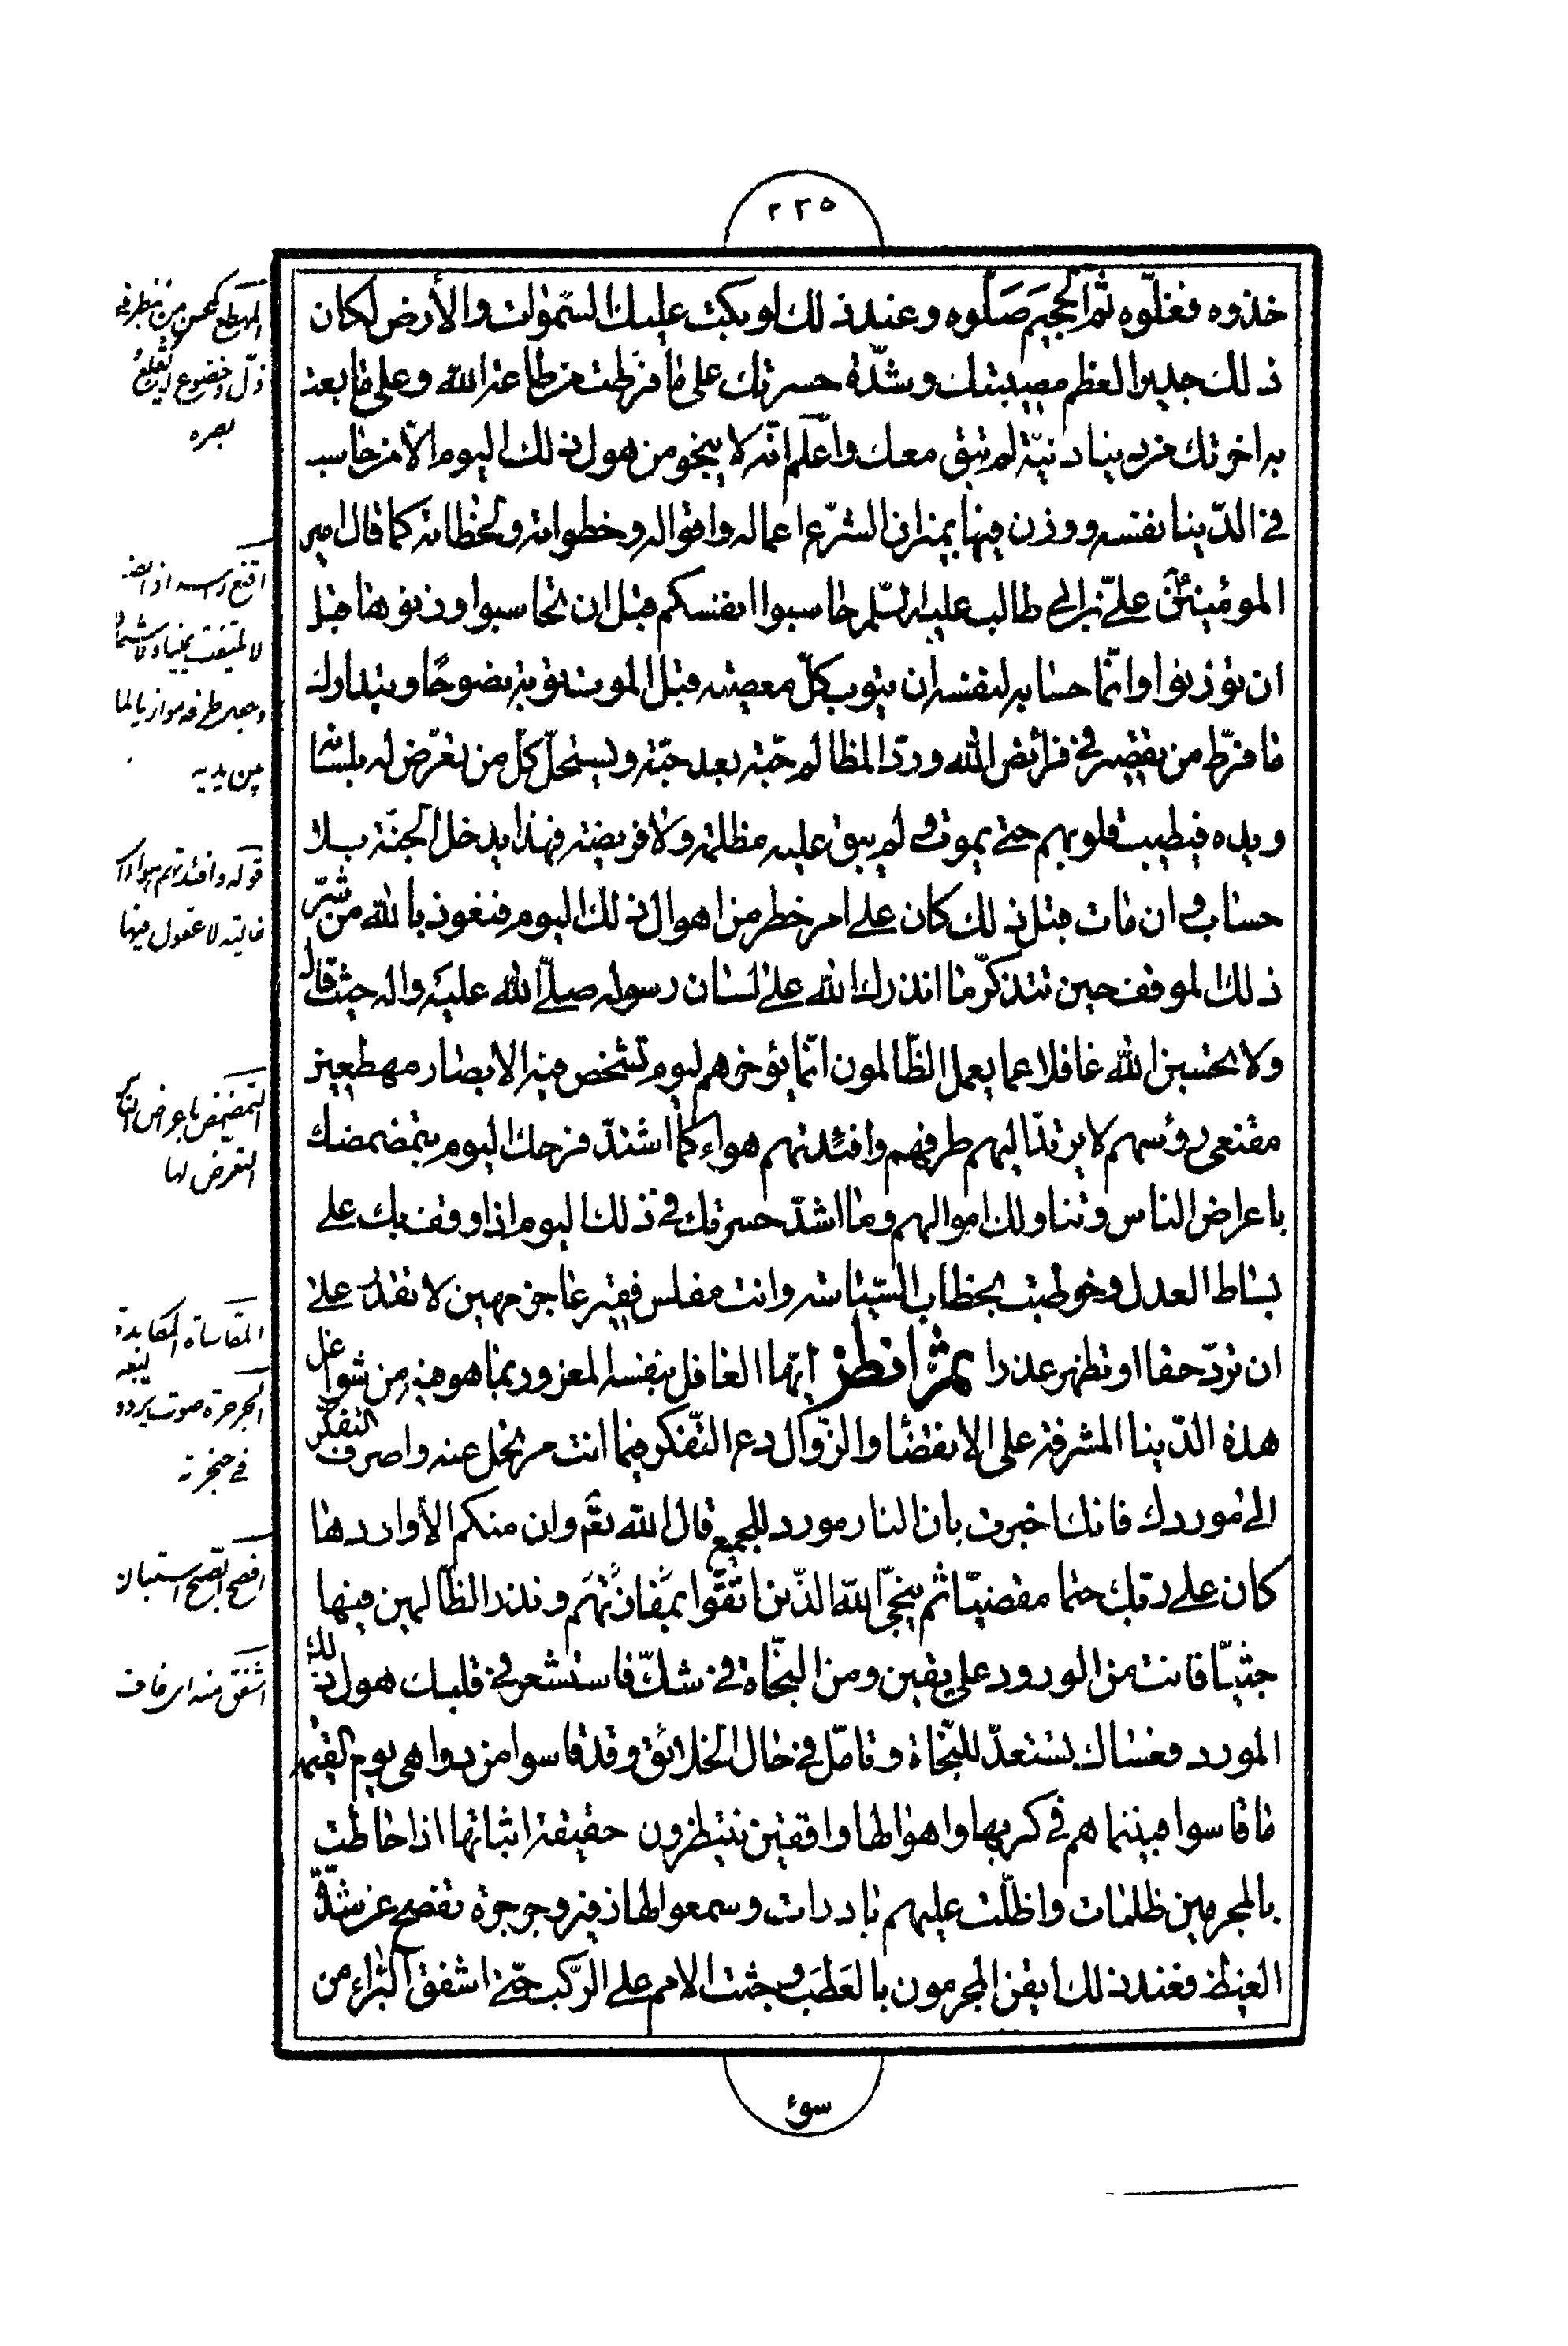 ٢٢٥
خذوه فغلّوه ثمّ الجحيم صَلّوه وعند ذلك لو بكت عليك السّموات والأرض لكان
ذلك جديرا لعظم مصيبتك وشدّة حسرتك على ما فرّطت من طاعة الله وعلى ما بعت
به اخرتك من دنيا دنيّة لم تبق معك واعلم انّه لا ينجو من هول ذلك اليوم الّا من حاسب
في الدّنيا نفسه ووزن فيها بميزان الشّرع اعماله واقواله وخطواته ولحظاته كما قال امير
المومنين علي بن ابي طالب عليه السّلم حاسبوا انفسكم قبل ان تحاسبوا وزنوها قبل
ان توزنوا وانّما حسابه لنفسه ان يتوب كلّ معصيته قبل الموت توبة نصوحًا ويتدارك
ما فرّط من تقصير في فرائض الله وردّ المظالم حبّة بعد حبّة ويستحلّ كلّ من تعرّض له بلسانه
ويده فيطيب قلوبهم حتى يموت ولم يبق عليه مظلمة ولا فريضة فهذا يدخل الجنّة بلا
حساب وان مات قبل ذلك كان على امر خطر من اهوال ذلك اليوم فنعوذ بالله من شرّ
ذلك الموقف حين تتذكّر ما انذرك الله على لسان رسوله صلّى الله عليه واله حيث قال
ولا تحسبن الله غافلا عما يعمل الظّالمون انّما يؤخرهم ليوم تشخص فيه الابصار مهطعين
مقنعى رؤسهم لا يرتدّ اليهم طرفهم وافئدتهم هواء كما اشتدّ فرحك اليوم بتمضمضك
باعراض الناس وتناولك اموالهم وما اشدّ حسرتك في ذلك اليوم اذا وقف بك على
بساط العدل وخوطبت بخطاب السّياسة وانت مفلس فقير عاجز مهين لا تقدر على
ان تردّ حقا او تظهر عذرا ثمّ انظر ايّها الغافل بنفسه المغرور بما هو فيه من شواغل
هذه الدّنيا المشرفة على الانقضا والزّوال دع التّفكر فيما انت مرتحل عنه واصرف التفكّر
الى موردك فانك اخبرت بان النار مورد للجميع قال الله تعم وان منكم الّا واردها
كان على ربّك حتما مقضيّا ثم ينجّي الله الذين اتّقوا بمفازتهم ونذر الظّالمين فيها
جثيّا فانت من الورود على يقين ومن النّجاة في شكّ فاستشعر في قلبك هول ذلك
المورد فعساك تستعدّ للنّجاة وتامّل في حال الخلائق وقد قاسوا من دواهى يوم القيمة
ما قاسوا فبينما هم في كربها واهوالها واقفين ننتظرون حقيقة انبائها اذا حاطت
بالمجرمين ظلمات واظلّت عليهم نار ذات وسمعوا لها زفير وجرجرة تفصح عن شدّة
الغيظ فعند ذلك ايقن المجرمون بالعَطَب وجثت الامم على الرّكب حتّى اشفق البُراء من
سوء
المهطع كمحسن من ينظر في
ذلّ وخضوع لا يقلع
بصره
اقنع راسه اذا نصبه
لا يلتفت يمينا ولا شمالا
وجعل طرفه موازيا لما
بين يديه
قوله وافئدتهم هواء اى
خالية لا عقول فيها
التمضمض باعراض الناس
التعرض لها
المقاساة المكابدة
الجرجرة صوت يردده البعير
في حنجرته
افصح الصبح استبان
اشفق منه اى خاف